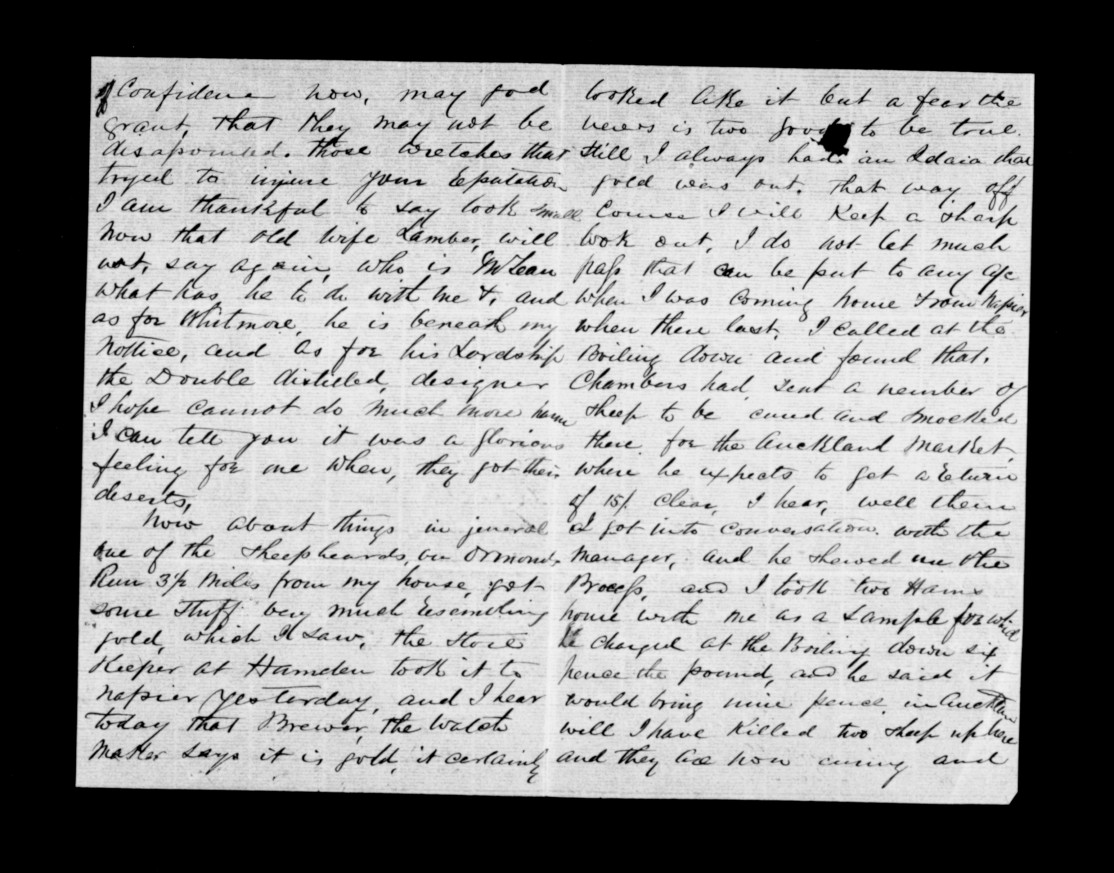 of Confidence now, may god
grant, that they may not be
disapointed. those wretches that
tryed to injure your Eputation
I am thankful to say look small
now that old wife Lamber, will
not, say again, who is McLean
what has, he to do with me &, and
as for Whitmore, he is beneath my
nottise, and as for his Lordship
the Double distilled, designer
I hope cannot do much more harm
I can tell you it was a glorious
feeling for me when, they got their
deserts,
Now about things in jeneral
one of the sheepheards, on Ormonds
Run 3½ miles from my house, got
some stuff very much Resembling
gold, which I saw, the store
Keeper at Hamden took it to
napier yesterday, and I hear
today that Brewer, the watch
maker says it is gold, it certainly
looked like it but a fear the
news is two good to be true.
Still I always had an Idaia that
gold was out. that way off
Course I will Keep a sharp
look out, I do not let much
pass that can be put to any use
when I was coming home from Napier
when there last, I called at the
Boiling down and found that.
Chambers had sent a number of
sheep to be cured and smocked
there. for the Auckland market.
where he expects to get a Return
of 15/ clear, I hear, well then
I got into conversation. with the
manager, and he shewed me the
Process, and I took two Hams
home with me as a sample for which
he charged at the Boiling down six
pence the pound, and he said it
would bring nine pence in Auckland
will I have Killed two sheep up here
and they are now curing and